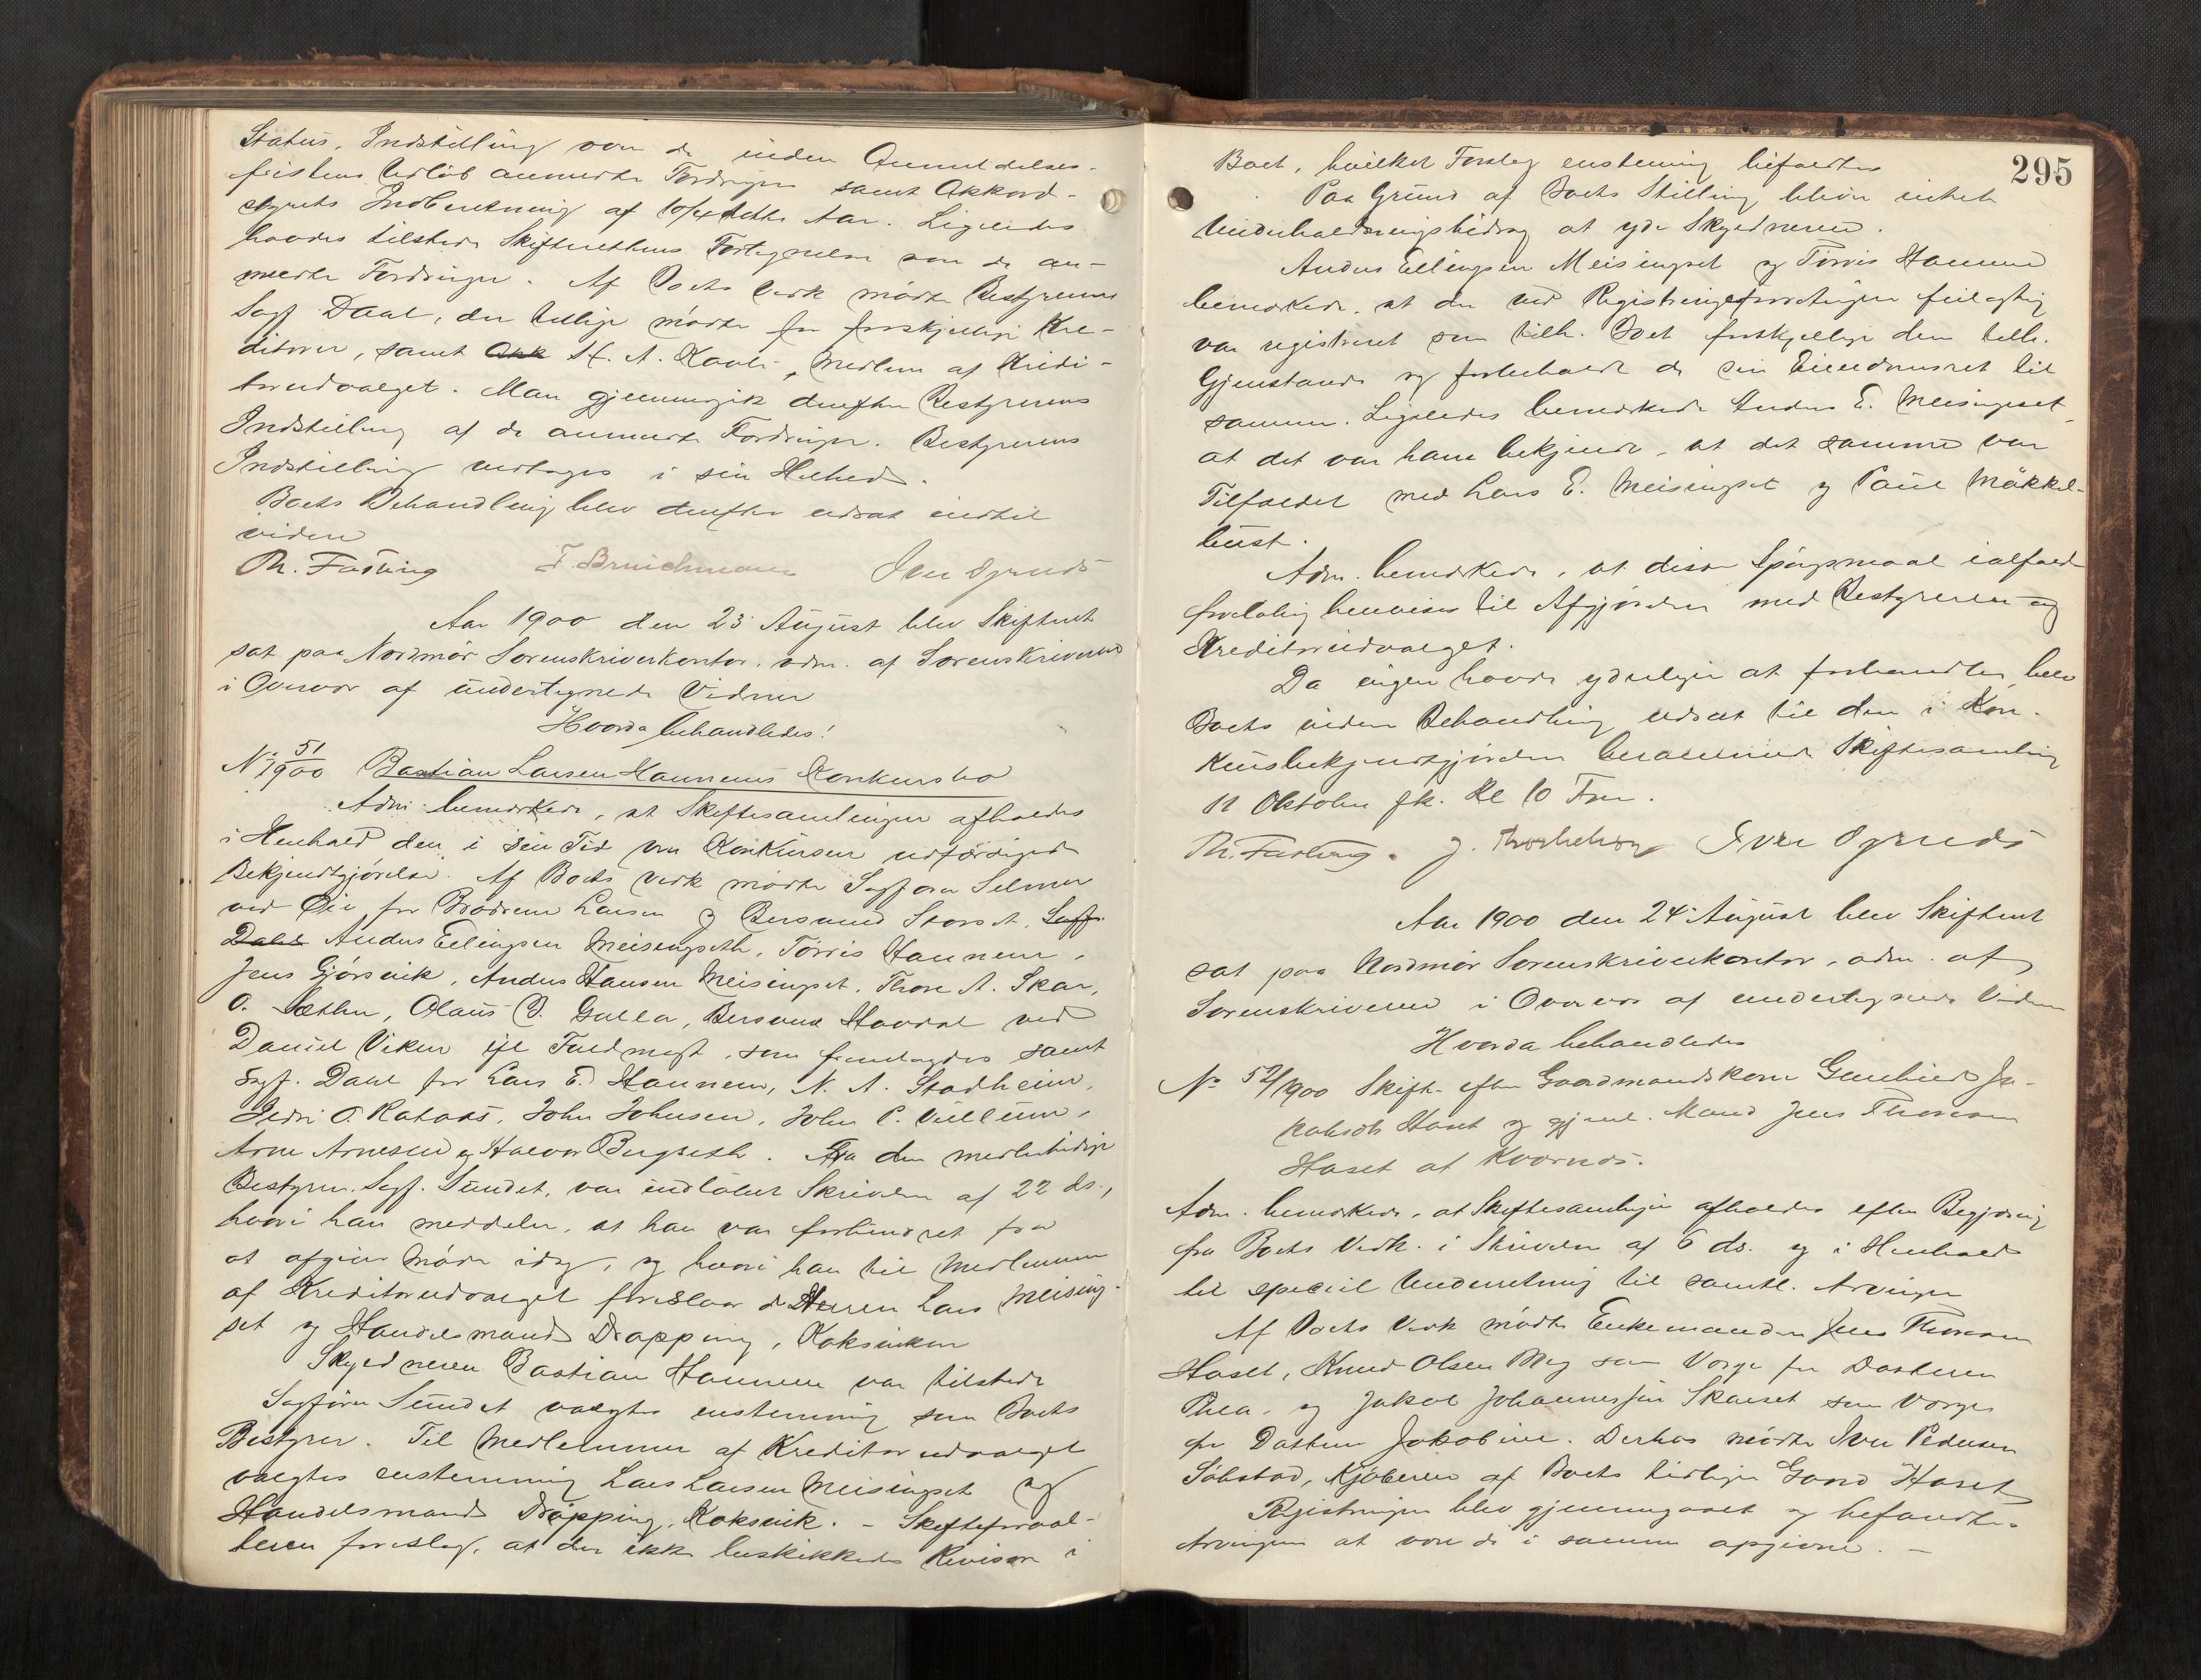 Status, Indstilling over de inden Anmeldelses-
fristens Udløb anmeldte Fordringer samt Akkord-
styrets Indberetning af 10/4 dette Aar. Ligeledes
havdes tilstede Skifterettens Fortegnelse over de an-
meldte Fordringer. Af Boets Vedk mødte Bestyreren
Sagf Daal, der tillige mødte for forskjellige Kre-
ditorer, samt H. A. Kaals, Medlem af Kredi-
torudvalget. Man gjennemgik derefter Bestyrerens
Indstilling af de anmeldte Fordringer. Bestyrerens
Indstilling vedtages i sin Helhed.
Boets Behandling blev derefter udsat indtil
videre
Th. Fasting F. Bruichmann Iver Ogmids
Aar 1900 den 23 August blev Skifteret
sat paa Nordmør Sorenskriverkontor, adm. af Sorenskriveren
i Overvær af undertegnede Vidner
Hvorda behandledes:
No 51/1900 Bastian Larsen Hannems Konkursbo
Adm. bemærkede, at Skiftesamlingen afholdes
i Henhold den i sin Tid om Konkursen udfærdigede
Bekjendtgjørelse. Af Boets Vedk mødte Sagfører Selmer
ved Øie for Brødrene Larsen og Bersvend Storset, Sagf.
Dahl Anders Ellingsen Meisingseth, Tørris Hannem,
Jens Gjørsvik, Anders Hansen Meisingset, Thore A. Skar,
O. Sæther, Olaus O. Gulla, Bersvend Hovdal ved
Daniel Viken ifl Fuldmagt, som fremlagdes samt
Sagf. Dahl for Lars E. Hannem, N. A. Stadheim,
Peder O. Rataas, John Johnsen, John P. Villum,
Arne Arnesen og Halvor Bergseth. Fra den midlertidige
Bestyrer Sagf. Sundet, var indløbet Skrivelse af 22 ds.,
hvori han meddeler, at han var forhindret fra
at afgive Møde idag, og hvori han til Medlemmer
af Kreditorudvalget foreslaar d Herrer Lars Meising-
set og Handelsmand Drøpping, Koksviken
Skyldneren Bastian Hannem var tilstede
Sagfører Sundet valgtes enstemmig som Boets
Bestyrer. Til Medlemmer af Kreditorudvalget
valgtes enstemmig Lars Larsen Meisingset og
Handelsmand Drøpping, Koksvik. - Skifteforval-
teren foreslog, at der ikke beskikkedes Revisor i
295
Boet, hvilket Forslag enstemmig bifaldtes
Paa Grund af Boets Stilling blev intet
Underholdningsbidrag at yde Skyldneren.
Anders Ellingsen Meisingset og Tørris Hannem
bemærkede, at der ved Registreringsforretningen feilagtig
var registreret som tilh. Boet forskjellige dem tilh.
Gjenstande og forbeholdt de sin Eiendomsret til
samme. Ligeledes bemærkede Anders E. Meisingset,
at det var ham bekjendt, at det samme var
Tilfældet med Lars E. Meisingset og Paul Møkkel-
bust.
Adm. bemærkede, at disse Spørgsmaal ialfald
foreløbig henvises til Afgjørelse med Bestyreren og
Kreditorudvalget.
Da ingen havde yderligere at forhandle, blev
Boets videre Behandling udsat til den i Kon-
kursbekjendtgjørelsen berammede Skiftesamling
11 Oktober fk. Kl 10 Form.
Th. Fasting. J. Iver Ogmids
Aar 1900 den 24 August blev Skifteret
sat paa Nordmør Sorenskriverkontor, adm. af
Sorenskriveren i Overvær af undertegnede Vidner
Hvorda behandledes
No 52/1900 Skifte efter Gaardmandskone Gunhild Ja-
kobsdt Haset og gjenl. Mand Jens Thoresen
Haset af Kvernæs.
Adm. bemærkede, at Skiftesamlingen afholdes efter Begjæring
fra Boets Vedk. i Skrivelse af 6 ds. og i Henhold
til speciel Underretning til samtl. Arvinger
Af Boets Vedk mødte Enkemanden Jens Thoresen
Haset, Knud Olsen Meg som Værge for Datteren
Thea, og Jakob Johannessen Skarset som Værge
for Datteren Jakobine. Derhos mødte Iver Pedersen
Søbstad, Kjøberen af Boets tidligere Gaard Haset
Registreringen blev gjennemgaaet og befandtes
Arvingerne at være de i samme opgivne. -